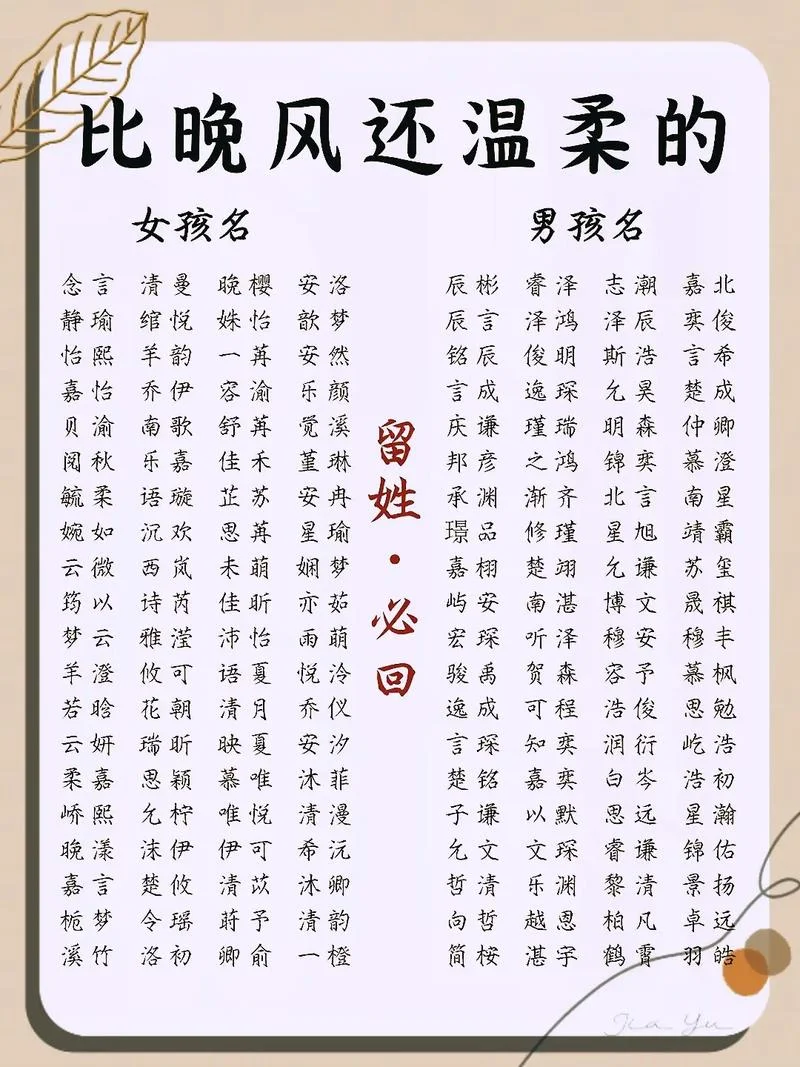 比晚风还温柔的
女孩名
念言 清曼 晚樱 安洛
静瑜 绾悦 姝怡 歆梦
怡熙 羊韵 一苒 安然
嘉怡 乔伊 容渝 乐颜
贝渝 南歌 舒苒 觉溪
阅秋 乐嘉 佳禾 堇琳
毓柔 语璇 芷苏 安冉
婉如 沉欢 思苒 星瑜
云微 西岚 未萌 娴梦
筠以 诗芮 佳昕 亦茹
梦云 雅滢 沛怡 雨萌
羊澄 攸可 语夏 悦泠
若晗 花朝 清月 乔仪
云妍 瑞昕 映夏 安汐
柔嘉 思颖 慕唯 沐菲
峤熙 允柠 唯悦 清漫
晚漾 沫伊 伊可 希沅
嘉言 楚攸 清苡 沐卿
栀梦 令瑶 莳予 清韵
溪竹 洛初 卿俞 一橙
留姓·必回
男孩名
辰彬 睿泽 志潮 嘉北
辰言 泽鸿 泽辰 奕俊
铭辰 俊明 斯浩 言希
言成 逸琛 允昊 楚成
庆谦 瑾瑞 明森 仲卿
邦彦 之鸿 锦奕 慕澄
承渊 渐齐 北言 南星
璟品 修瑾 星旭 靖霸
嘉栩 楚翊 允谦 苏玺
屿安 南湛 博文 晟祺
宏琛 听泽 穆安 穆丰
骏禹 贺森 容予 慕枫
逸成 可程 浩俊 思勉
言琛 知奕 润衍 屹浩
楚铭 嘉奕 白岑 浩初
子谦 以默 思远 星瀚
允文 文琛 睿谦 锦佑
哲清 乐渊 黎清 景扬
向哲 越思 柏凡 卓远
简桉 湛宇 鹤霄 羽皓
Jia Yu